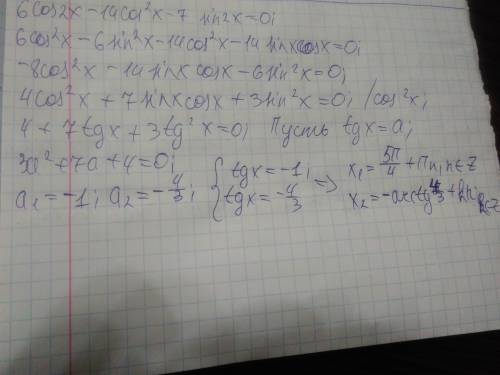 6cos2x - 14cos²x - 7 sin2x = 0;
6cos²x - 6sin²x - 14cos²x - 14 sinxcosx = 0;
-8cos²x - 14 sinx cosx - 6sin²x = 0;
4cos²x + 7sinxcosx + 3sin²x = 0; /cos²x;
4 + 7tgx + 3tg²x = 0; Пусть tgx = a;
3a² + 7a + 4 = 0;
a₁ = -1; a₂ = -4/3; { tgx = -1; tgx = -4/3 => x₁ = 5π/4 + πn, n∈Z
x₂ = -arctg 4/3 + πn; n∈Z